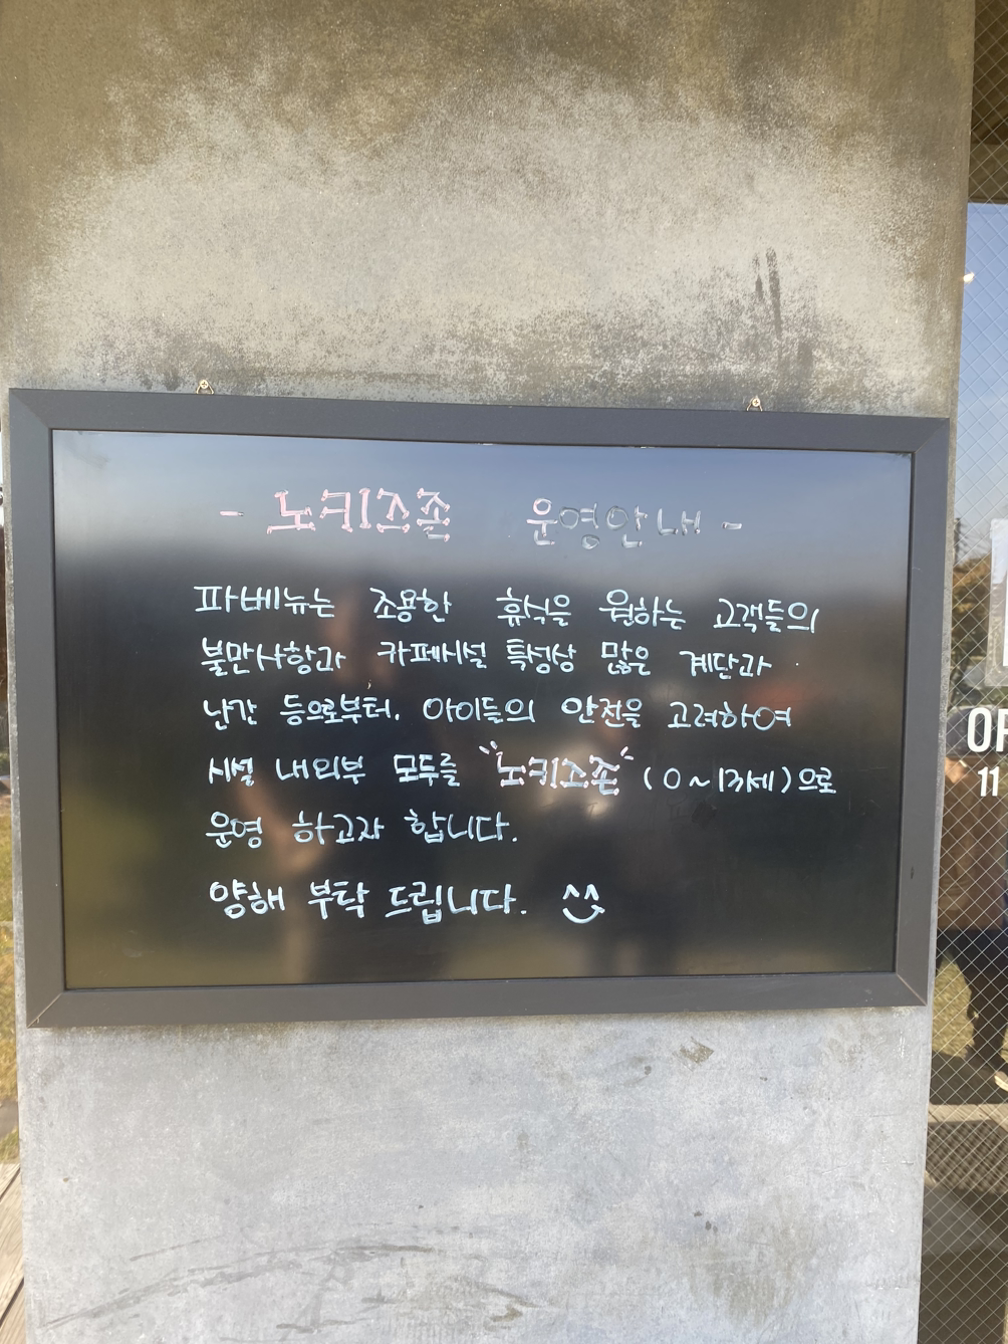 - 노키즈존 운영안내 -
파베뉴는 조용한 휴식을 원하는 고객들의
불만사항과 카페시설 특성상 많은 계단과
난간 등으로부터, 아이들의 안전을 고려하여
시설 내외부 모두를 "노키즈존" (0~13세)으로
운영 하고자 합니다.
양해 부탁 드립니다. ^^
OP
11